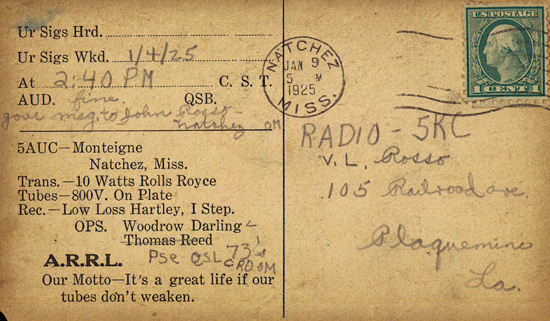 Ur Sigs Hrd.
Ur Sigs Wkd. 1/4/25
At 2:40 PM C. S. T.
AUD. fine QSB.
gave msg. to John Rosso
Natchez OM
5AUC—Monteigne
Natchez, Miss.
Trans.—10 Watts Rolls Royce
Tubes—800V. On Plate
Rec.—Low Loss Hartley, I Step.
OPS. Woodrow Darling
Thomas Reed
Pse QSL 73's
CRD OM
A.R.R.L.
Our Motto—It's a great life if our
tubes don't weaken.
NATCHEZ
JAN 9
5 M
1925
MISS.
U.S. POSTAGE
1 CENT 1
RADIO - 5KC
V. L. Rosso
105 Railroad ave.
Plaquemine
La.